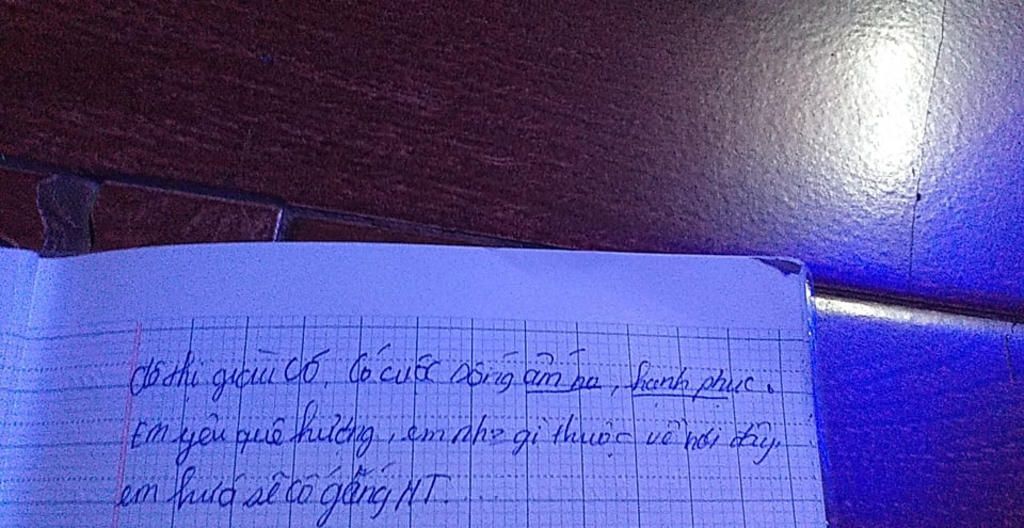 đô thị giàu có. Có cuộc sống ấm no, hạnh phúc.
Em yêu quê hương, em nhớ gì thuộc về nơi đây.
em hứa sẽ cố gắng HT.